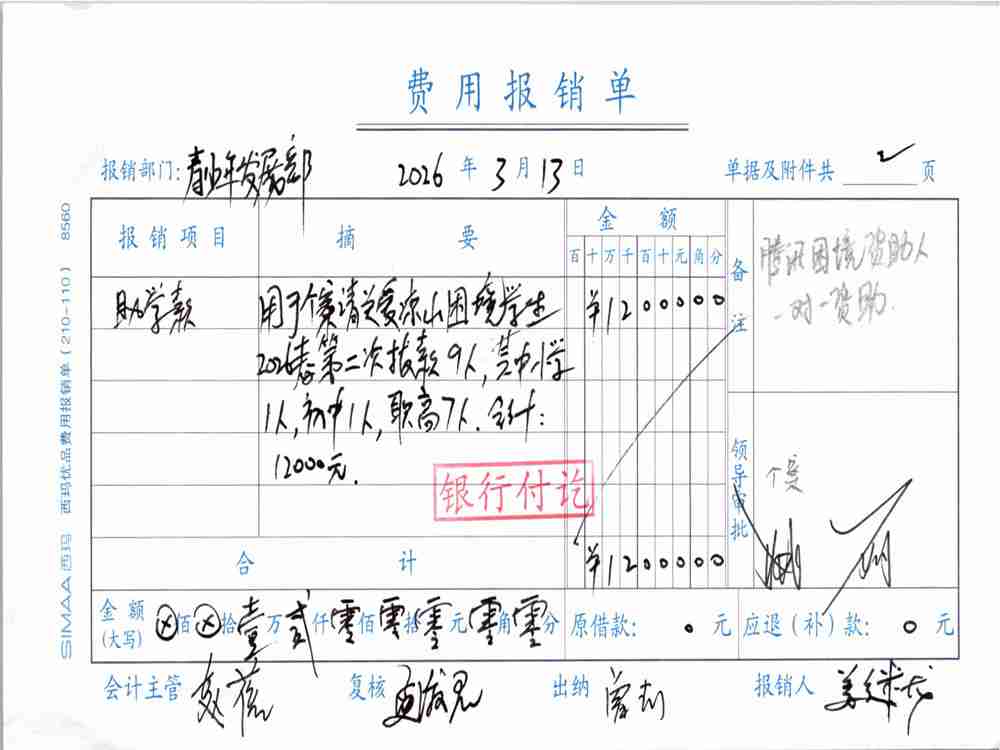 费用报销单
报销部门：青少年发展部 2026年3月13日 单据及附件共 2 页
报销项目 摘要 金额 备注
百十万千百十元角分
助学款 用于个案请关爱凉山困境学生 ¥1200000
2026春第二次拨款9人，其中小学
1人，初中1人，职高7人．合计：
12000元．
腾讯困境资助人
一对一资助．
银行付讫
领导审批
合计 ¥1200000
金额（大写）ⓧ佰ⓧ拾壹万贰仟零佰零拾零元零角零分 原借款： 0 元 应退（补）款： 0 元
会计主管 复核 出纳 报销人
SIMAA 西玛 西玛优品费用报销单（210-110） 8560